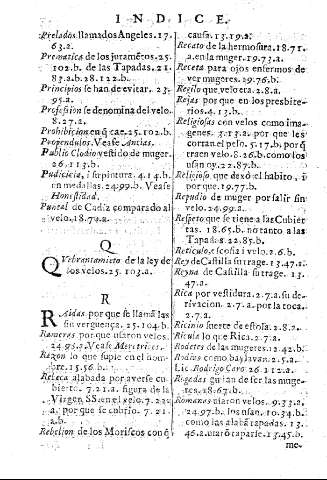 INDICE.
Prelados llamados Angeles. 17.
63.a.
Prematica de los juramẽtos. 25.
102.b. de las Tapadas. 21.
83.a.b. 28.122.b.
Principios se han de evitar. 23.
95.a.
Profession se denomina del velo.
8.27.a.
Prohibicion en q̃ cae. 25.102.b.
Propendulos. Vease Antias.
Public Clodio vestido de muger.
26.113.b.
Pudicicia, i su pintura. 4.14.b.
en medallas. 24.99.b. Vease
Honestidad.
Puntal de Cadiz comparado al
velo. 18.74.a.
Q
Quebrantamiento de la ley de
los velos. 25. 103.a.
R
Raidas por que se llamã las
sin verguença. 25.104.b.
Rameras por que usaron velos.
24.95.a. Vease Meretrices.
Razon lo que suple en el hom-
bre. 15.56.b.
Rebeca alabada por averse cu-
bierto. 7.21.a. figura de la
Virgen SS. en el velo. 7.22.
a. por que se cubrio. 7.21.
a.b.
Rebelion de los Moriscos con q̃
causa. 13.19.a.
Recato de la hermosura. 18.71.
a. en la muger. 19.73.a.
Receta para ojos enfermos de
ver mugeres. 29.76.b.
Regilo que velo era. 2.8.a.
Rejas por que en los presbite-
rios. 4.13.b.
Religiosas con velos como ima-
genes. 3.13.a. por que les
cortan el pelo. 5.17.b. por q̃
traen velo. 8.26.b. como los
usan oy. 22.87.b.
Religioso que dexò el habito, i
por que. 19.77.b.
Repudio de muger por salir sin
velo. 24.99.a.
Respeto que se tiene a las Cubier
tas. 18.65.b. no tanto a las
Tapadas. 22.85.b.
Reticulo. i scofia i velo. 2.6.b.
Rey de Castilla su trage. 13.47.a.
Reyna de Castilla su trage. 13.
47.a.
Rica por vestidura. 2.7.a. su de-
rivacion. 2.7.a. por la toca.
2.7.a.
Ricinio suerte de estola. 2.8.a.
Ricula lo que Rica. 2.7.a.
Rodetes de las mugeres. 12.42.b.
Rodias como baylavan. 2.5.a.
Lic. Rodrigo Caro. 26.112.a.
Rogadas gustan de ser las muge-
res. 28.67.b.
Romanas usaron velos. 9.33.a.
24.97.b. los usan. 10.34.b.
como las alabã tapadas. 13.
46.a. usarõ taparse. 13.45.b.
me-